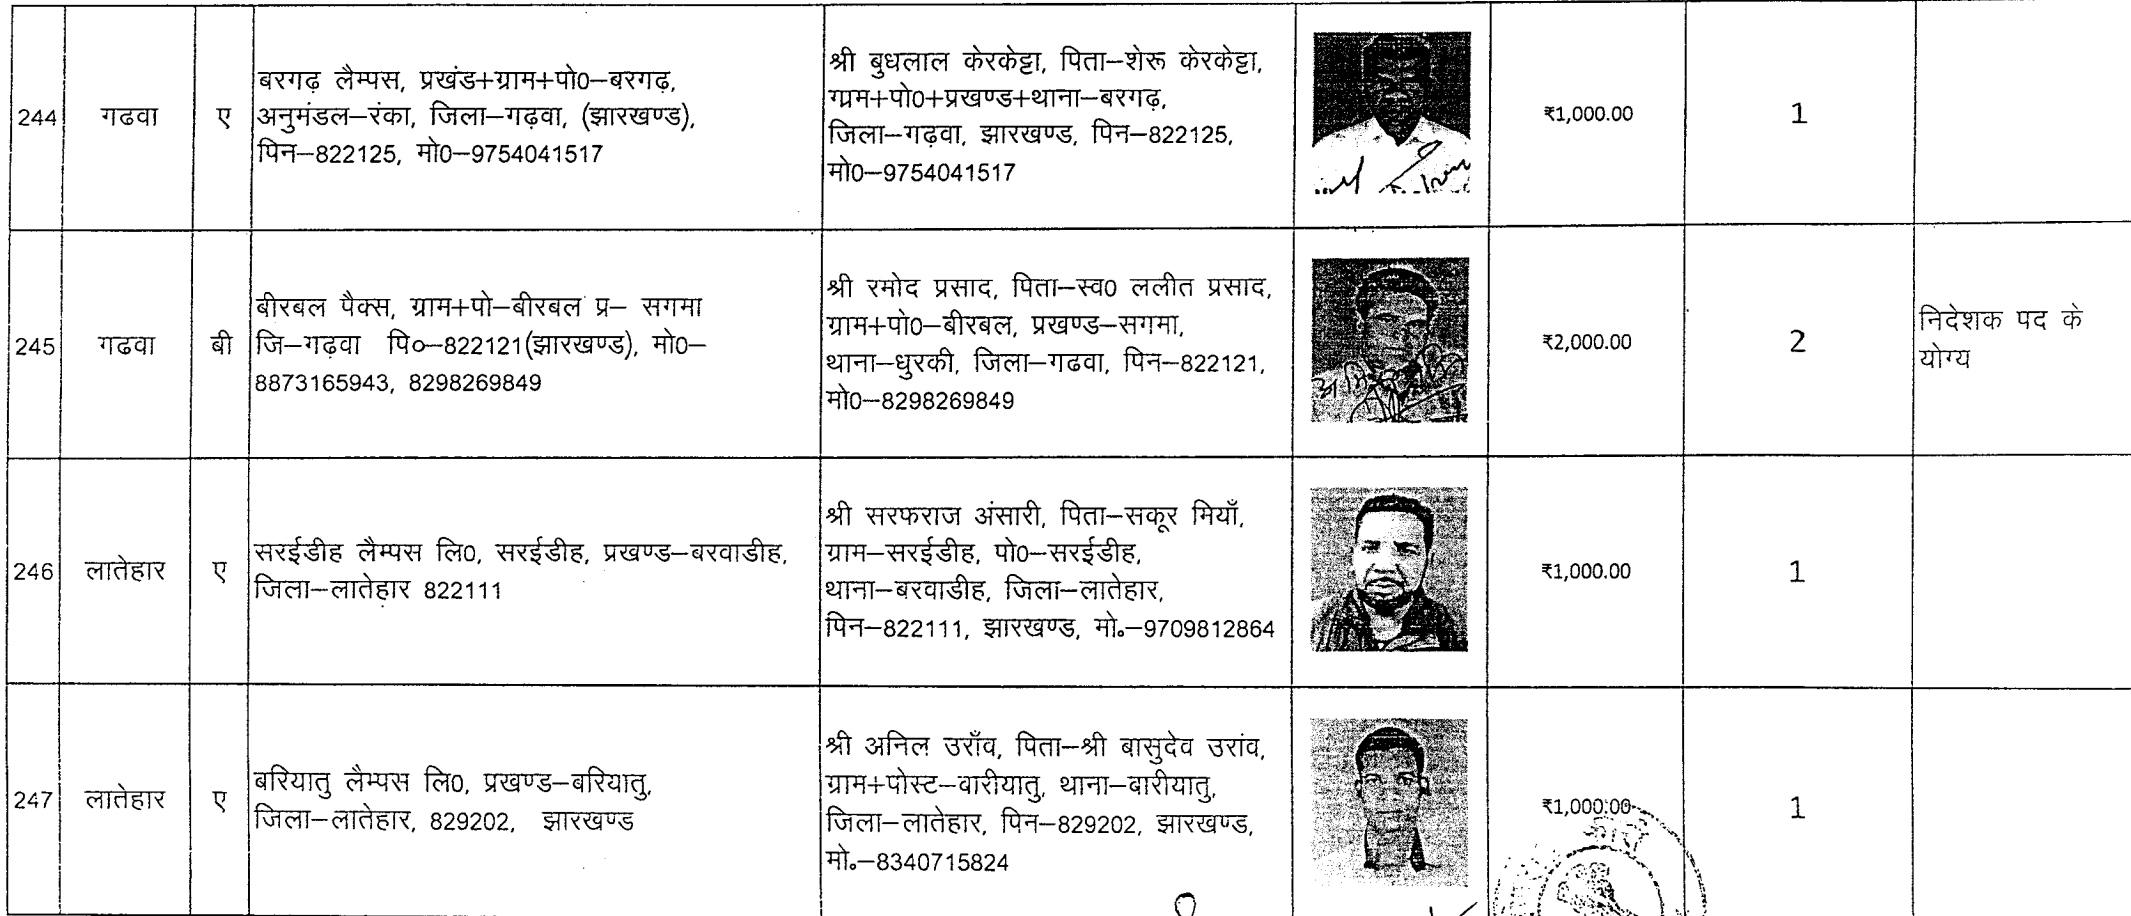 244
गढवा
ए
बरगढ़ लैम्पस, प्रखंड+ग्राम+पो0–बरगढ़,
अनुमंडल–रंका, जिला–गढ़वा, (झारखण्ड),
पिन–822125, मो0–9754041517
श्री बुधलाल केरकेट्टा, पिता–शेरू केरकेट्टा,
ग्राम+पो0+प्रखण्ड+थाना–बरगढ़,
जिला–गढ़वा, झारखण्ड, पिन–822125,
मो0–9754041517
₹1,000.00
1
245
गढवा
बी
बीरबल पैक्स, ग्राम+पो–बीरबल प्र– सगमा
जि–गढ़वा पि०–822121(झारखण्ड), मो0–
8873165943, 8298269849
श्री रमोद प्रसाद, पिता–स्व0 ललीत प्रसाद,
ग्राम+पो0–बीरबल, प्रखण्ड–सगमा,
थाना–धुरकी, जिला–गढवा, पिन–822121,
मो0–8298269849
₹2,000.00
2
निदेशक पद के
योग्य
246
लातेहार
ए
सरईडीह लैम्पस लि0, सरईडीह, प्रखण्ड–बरवाडीह,
जिला–लातेहार 822111
श्री सरफराज अंसारी, पिता–सकूर मियाँ,
ग्राम–सरईडीह, पो0–सरईडीह,
थाना–बरवाडीह, जिला–लातेहार,
पिन–822111, झारखण्ड, मो.–9709812864
₹1,000.00
1
247
लातेहार
ए
बरियातु लैम्पस लि0, प्रखण्ड–बरियातु,
जिला–लातेहार, 829202, झारखण्ड
श्री अनिल उराँव, पिता–श्री बासुदेव उरांव,
ग्राम+पोस्ट–वारीयातु, थाना–बारीयातु,
जिला–लातेहार, पिन–829202, झारखण्ड,
मो.–8340715824
₹1,000.00
1